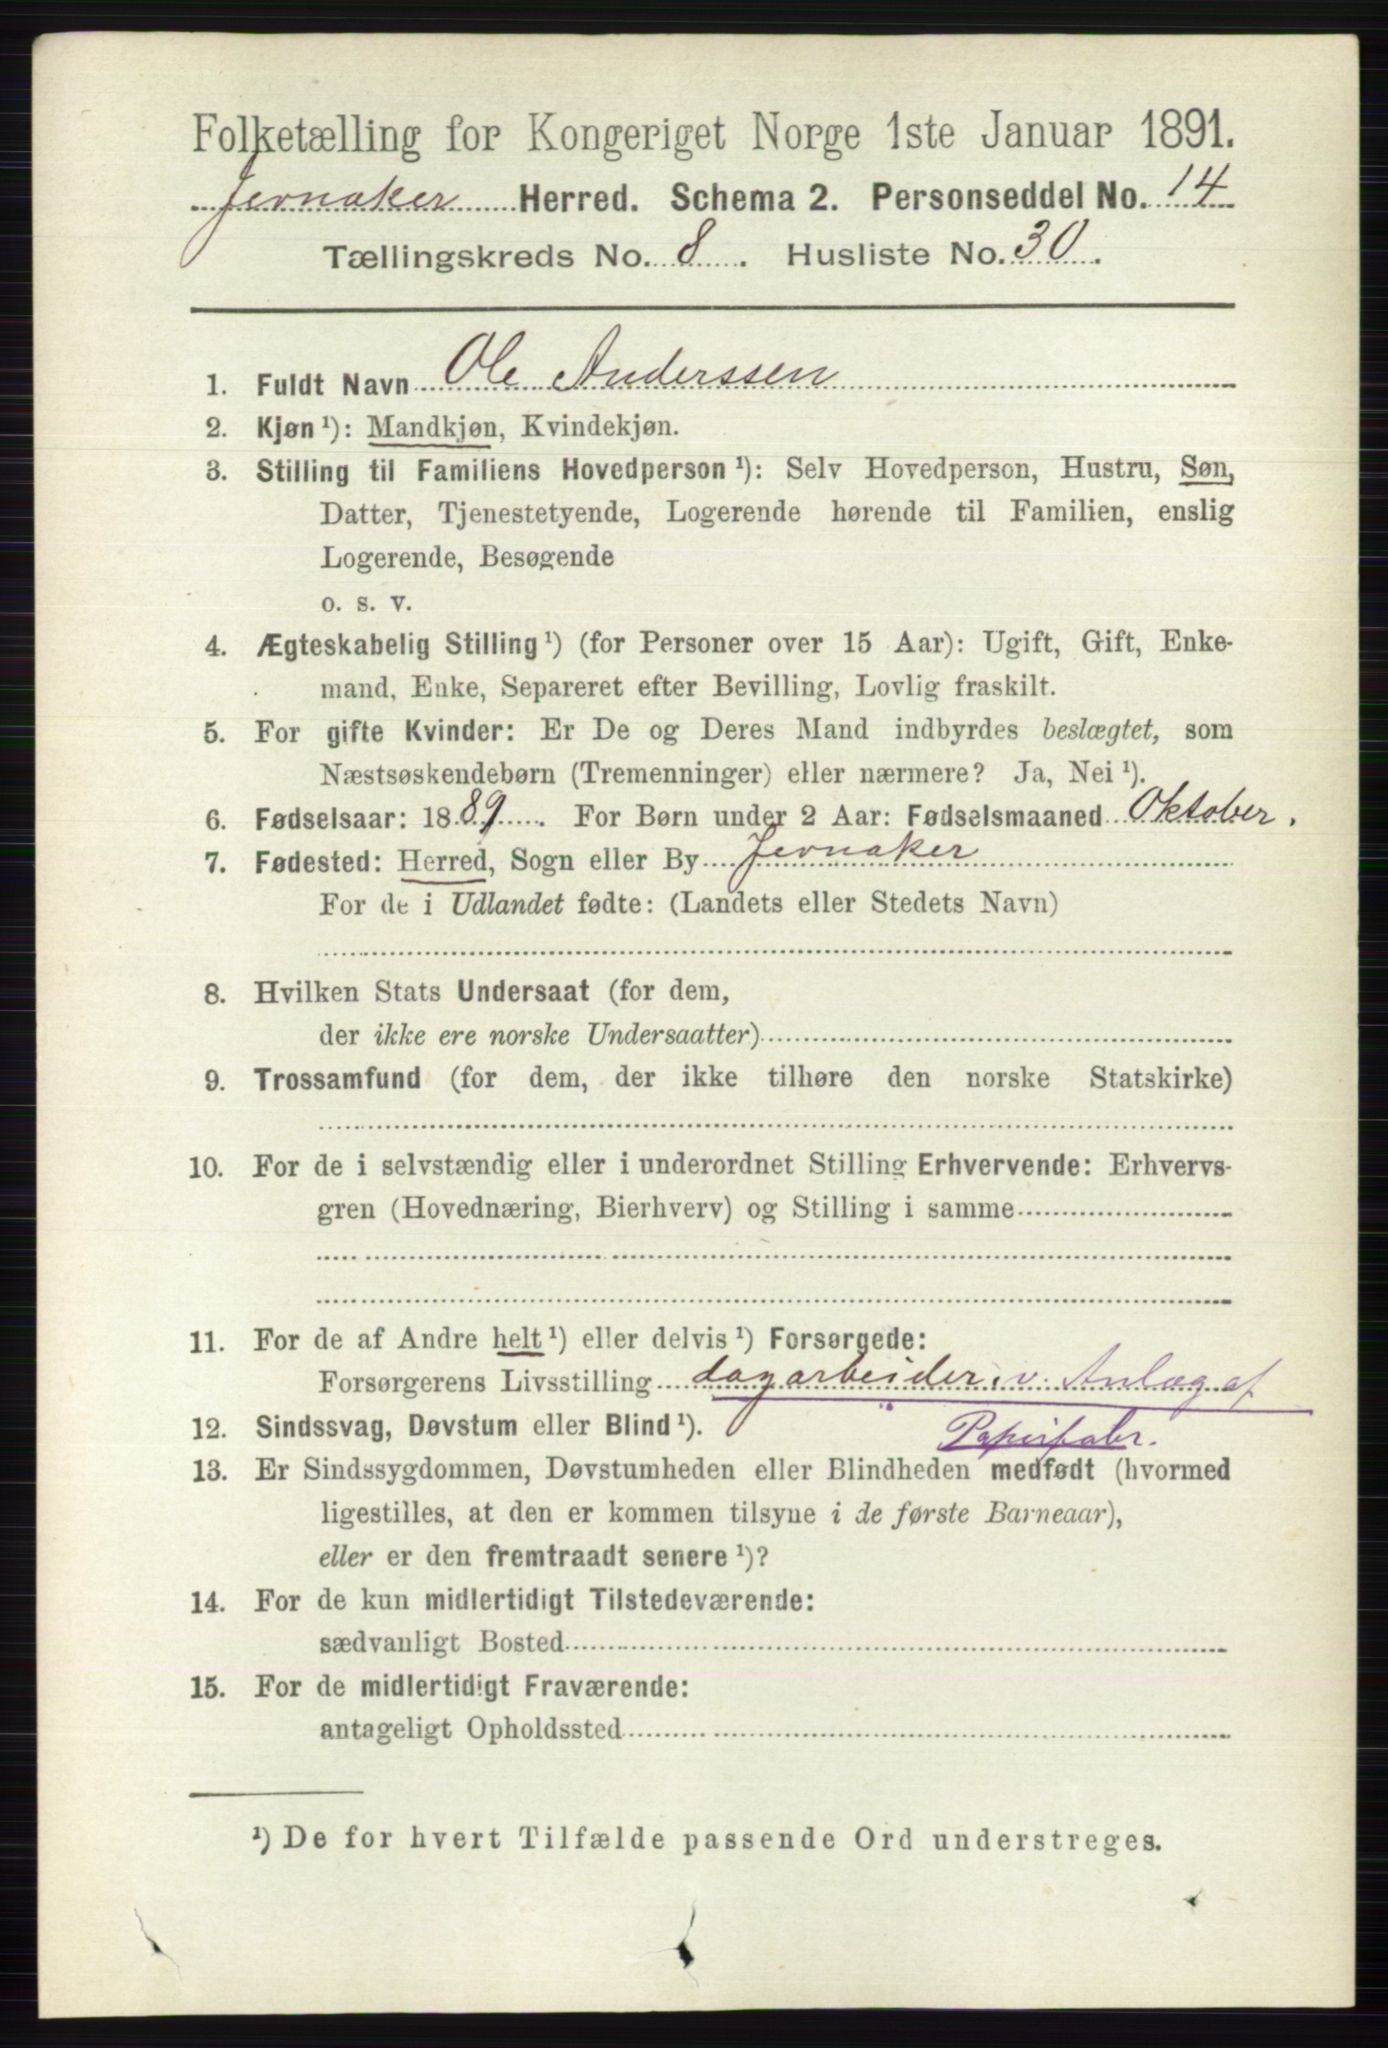 Folketælling for Kongeriget Norge 1ste Januar 1891.
Jevnaker Herred. Schema 2. Personseddel No. 14
Tællingskreds No. 8. Husliste No. 30.
1. Fuldt Navn Ole Anderssen
2. Kjøn ¹): Mandkjøn, Kvindekjøn.
3. Stilling til Familiens Hovedperson ¹): Selv Hovedperson, Hustru, Søn,
Datter, Tjenestetyende, Logerende hørende til Familien, enslig
Logerende, Besøgende
o. s. v.
4. Ægteskabelig Stilling ¹) (for Personer over 15 Aar): Ugift, Gift, Enke-
mand, Enke, Separeret efter Bevilling, Lovlig fraskilt.
5. For gifte Kvinder: Er De og Deres Mand indbyrdes beslægtet, som
Næstsøskendebørn (Tremenninger) eller nærmere? Ja, Nei ¹).
6. Fødselsaar: 1889. For Børn under 2 Aar: Fødselsmaaned Oktober.
7. Fødested: Herred, Sogn eller By Jevnaker
For de i Udlandet fødte: (Landets eller Stedets Navn)
8. Hvilken Stats Undersaat (for dem,
der ikke ere norske Undersaatter)
9. Trossamfund (for dem, der ikke tilhøre den norske Statskirke)
10. For de i selvstændig eller i underordnet Stilling Erhvervende: Erhvervs-
gren (Hovednæring, Bierhverv) og Stilling i samme
11. For de af Andre helt ¹) eller delvis ¹) Forsørgede:
Forsørgerens Livsstilling dagarbeider. v. Anlæg af
12. Sindssvag, Døvstum eller Blind ¹). Papirfabr.
13. Er Sindssygdommen, Døvstumheden eller Blindheden medfødt (hvormed
ligestilles, at den er kommen tilsyne i de første Barneaar),
eller er den fremtraadt senere ¹)?
14. For de kun midlertidigt Tilstedeværende:
sædvanligt Bosted
15. For de midlertidigt Fraværende:
antageligt Opholdssted
¹) De for hvert Tilfælde passende Ord understreges.